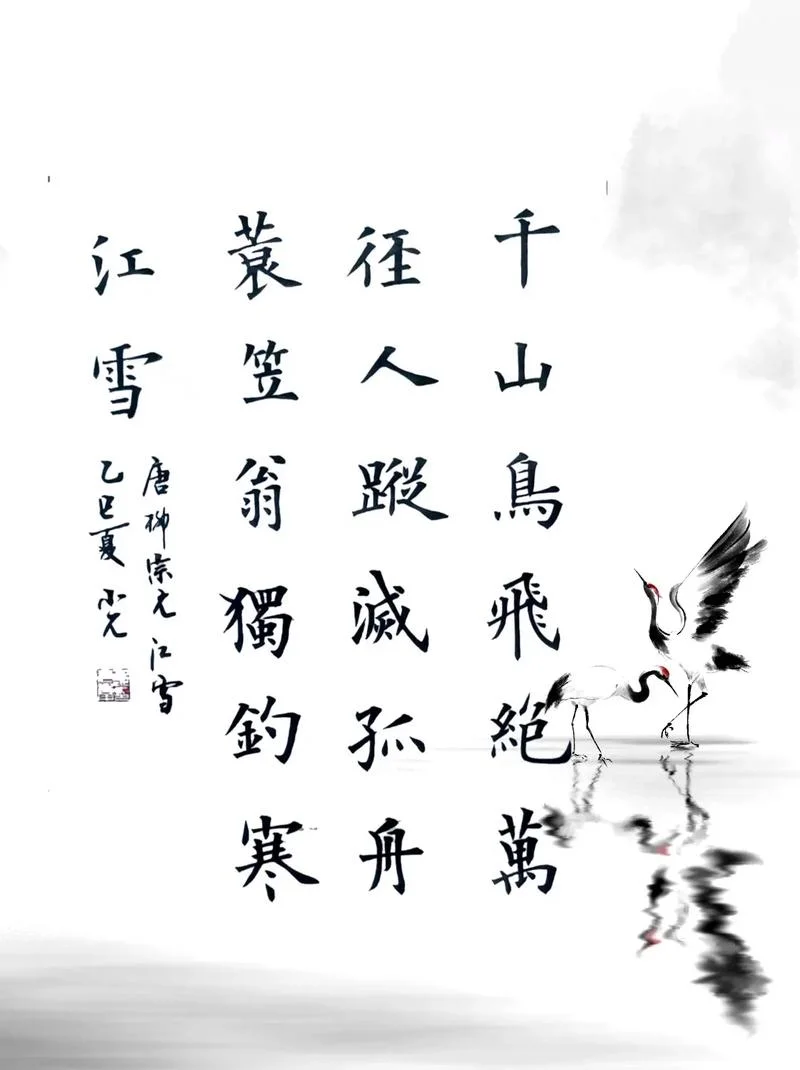 千山鳥飛絕萬
徑人蹤滅孤舟
蓑笠翁獨釣寒
江雪
唐柳宗元江雪
乙巳夏